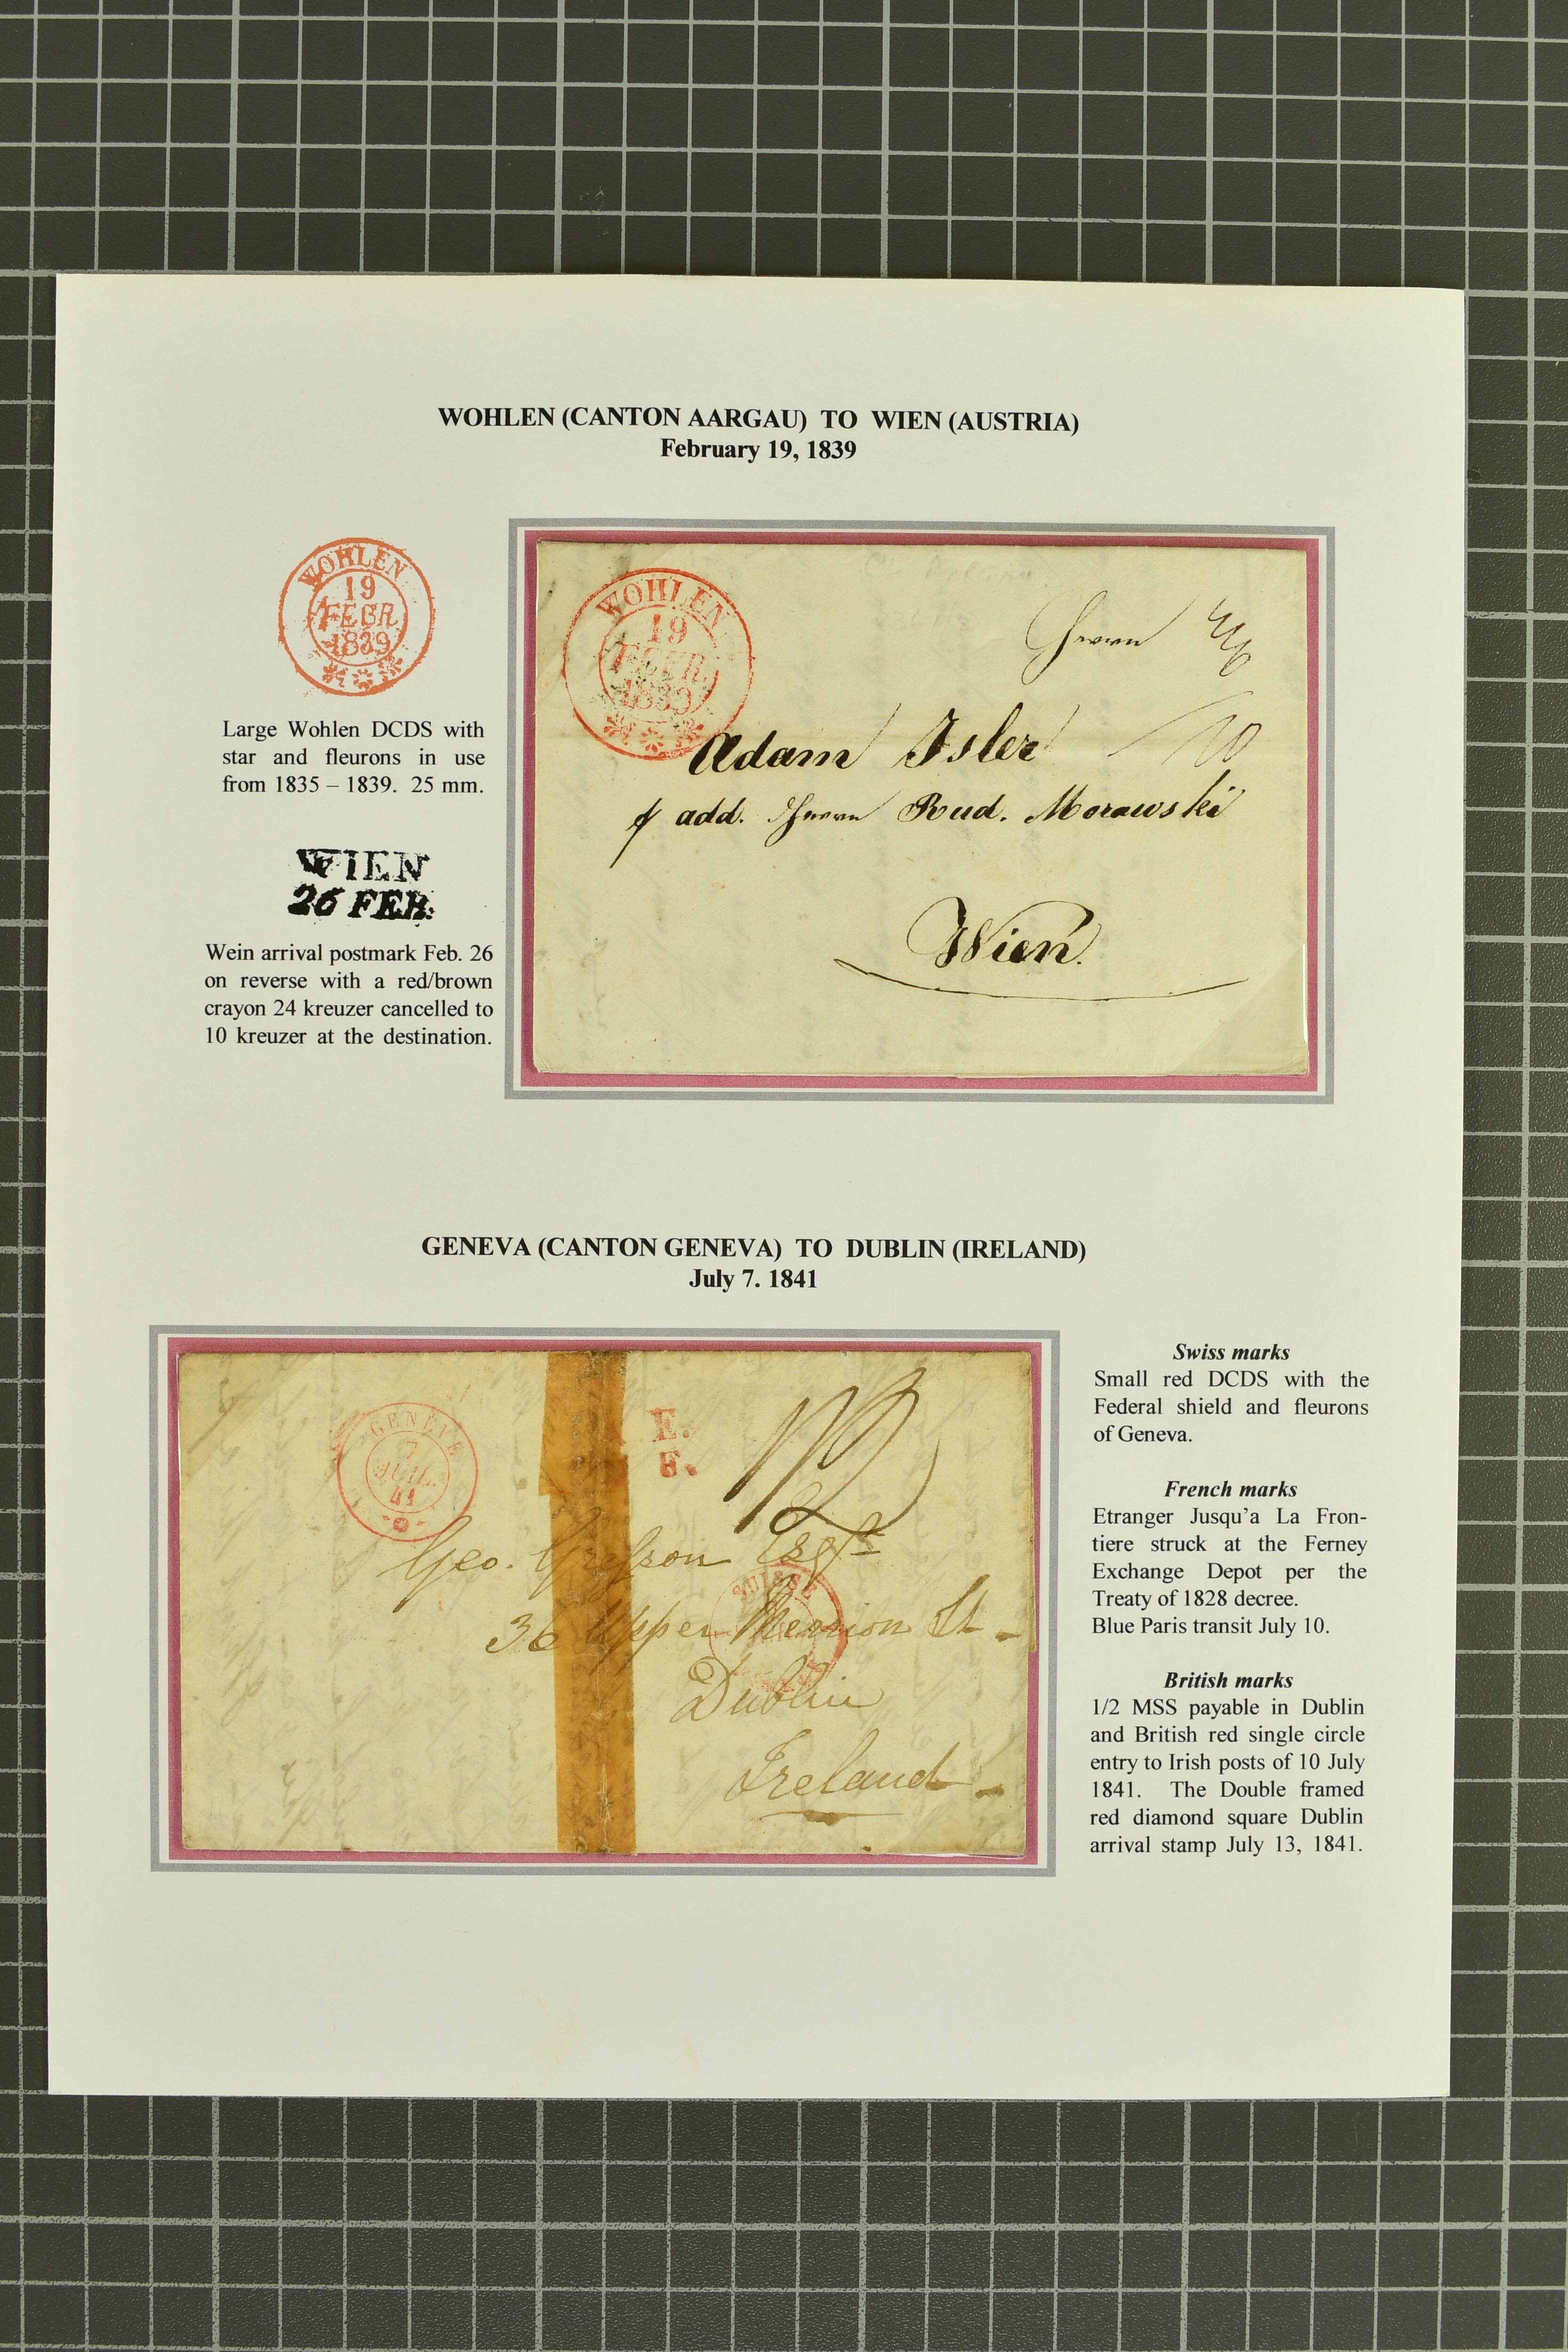 WOHLEN (CANTON AARGAU) TO WIEN (AUSTRIA)
February 19, 1839
WOHLEN
19
FEBR
1839
Large Wohlen DCDS with
star and fleurons in use
from 1835 – 1839. 25 mm.
WIEN
26 FEB.
Wein arrival postmark Feb. 26
on reverse with a red/brown
crayon 24 kreuzer cancelled to
10 kreuzer at the destination.
WOHLEN
19
FEBR
1839
Herrn
Adam Isler
10
add. Herrn Rud. Morawski
Wien.
GENEVA (CANTON GENEVA) TO DUBLIN (IRELAND)
July 7. 1841
GENEVE
7
JUIL.
41
E.
F.
Geo. Grefson Esqre
SUISSE
36 Upper Merrion St -
Dublin
Ireland -
Swiss marks
Small red DCDS with the
Federal shield and fleurons
of Geneva.
French marks
Etranger Jusqu'a La Fron-
tiere struck at the Ferney
Exchange Depot per the
Treaty of 1828 decree.
Blue Paris transit July 10.
British marks
1/2 MSS payable in Dublin
and British red single circle
entry to Irish posts of 10 July
1841. The Double framed
red diamond square Dublin
arrival stamp July 13, 1841.